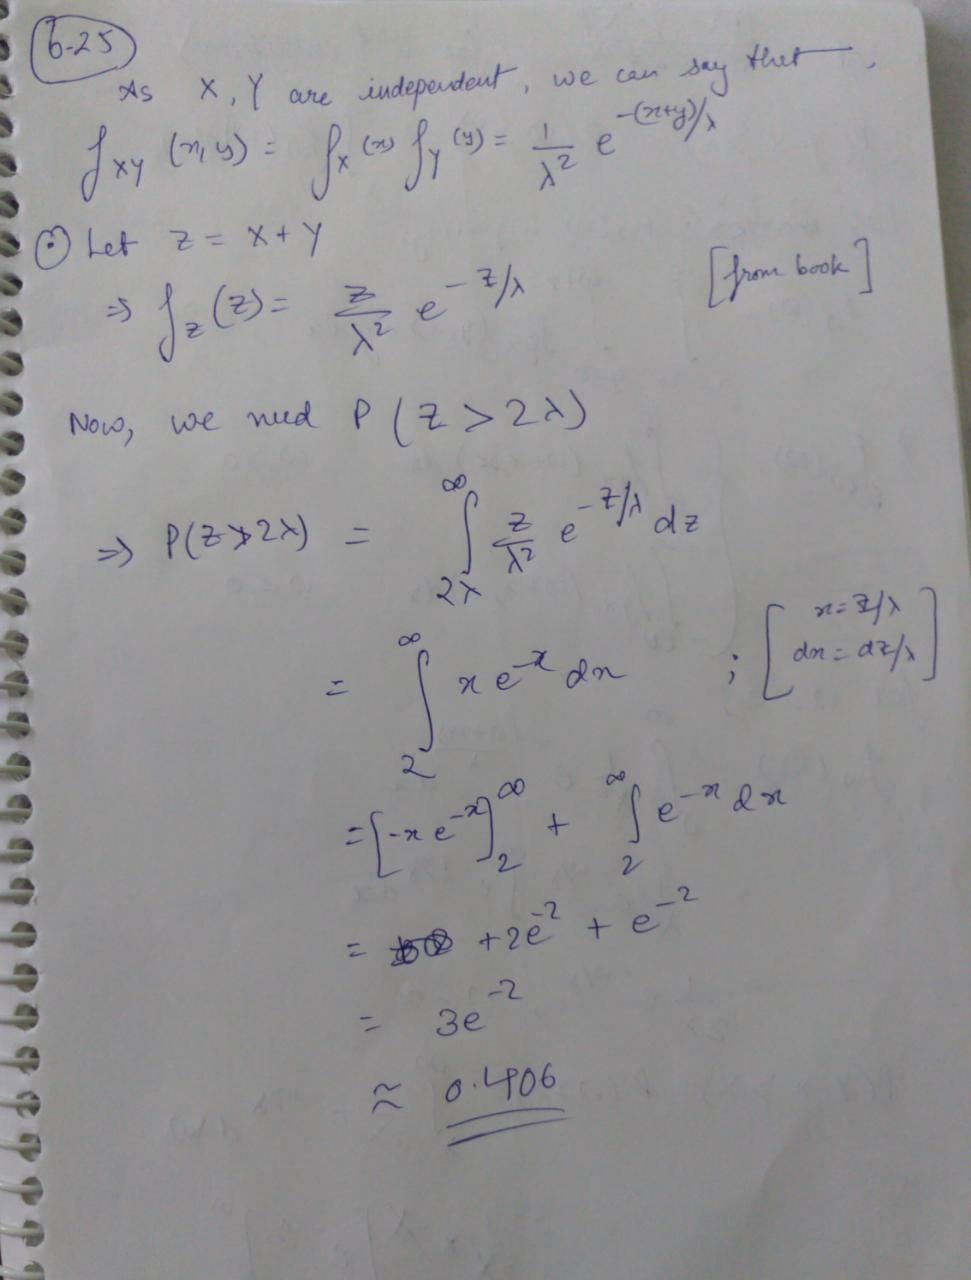 6-25
As X, Y are independent, we can say that,
f_XY (x,y) = f_X (x) f_Y (y) = 1/λ² e^-(x+y)/λ
⊙ Let Z = X + Y
⇒ f_Z (z) = z/λ² e^-z/λ [from book]
Now, we need P (Z > 2λ)
⇒ P(Z > 2λ) = ∫_2λ^∞ z/λ² e^-z/λ dz
= ∫_2^∞ x e^-x dx ; [x = z/λ
dx = dz/λ]
= [-x e^-x]_2^∞ + ∫_2^∞ e^-x dx
= +2e^-2 + e^-2
= 3e^-2
≈ 0.406